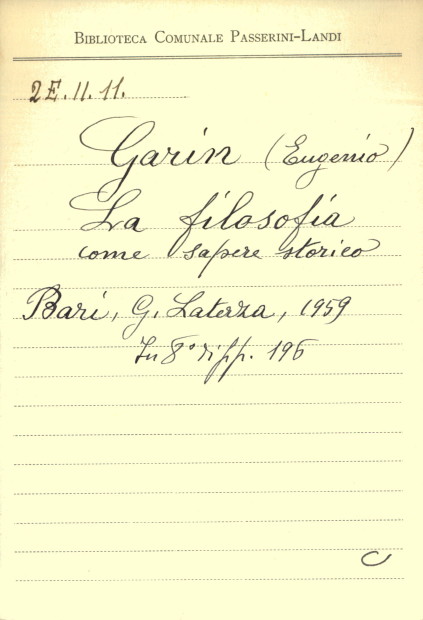 BIBLIOTECA COMUNALE PASSERINI-LANDI
2E.II.11.
Garin (Eugenio)
La filosofia
come sapere storico
Bari, G. Laterza, 1959
In 8° di pp. 196
C